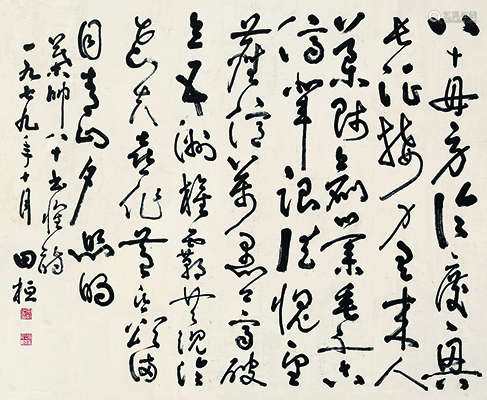 八十毋劳论废兴
长征接力有来人
导师创业垂千古
侪辈跟随愧望
尘亿万愚公齐破
立五洲权霸共沉沦
老夫喜作黄昏颂满
目青山夕照明
叶帅八十书怀诗
一九七九年十月 田桓